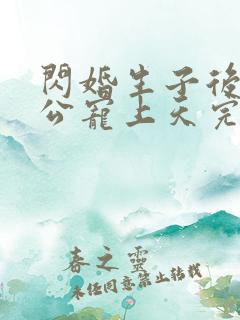 閃婚生子後
公寵上天完
春之靈
未經同意禁止轉載